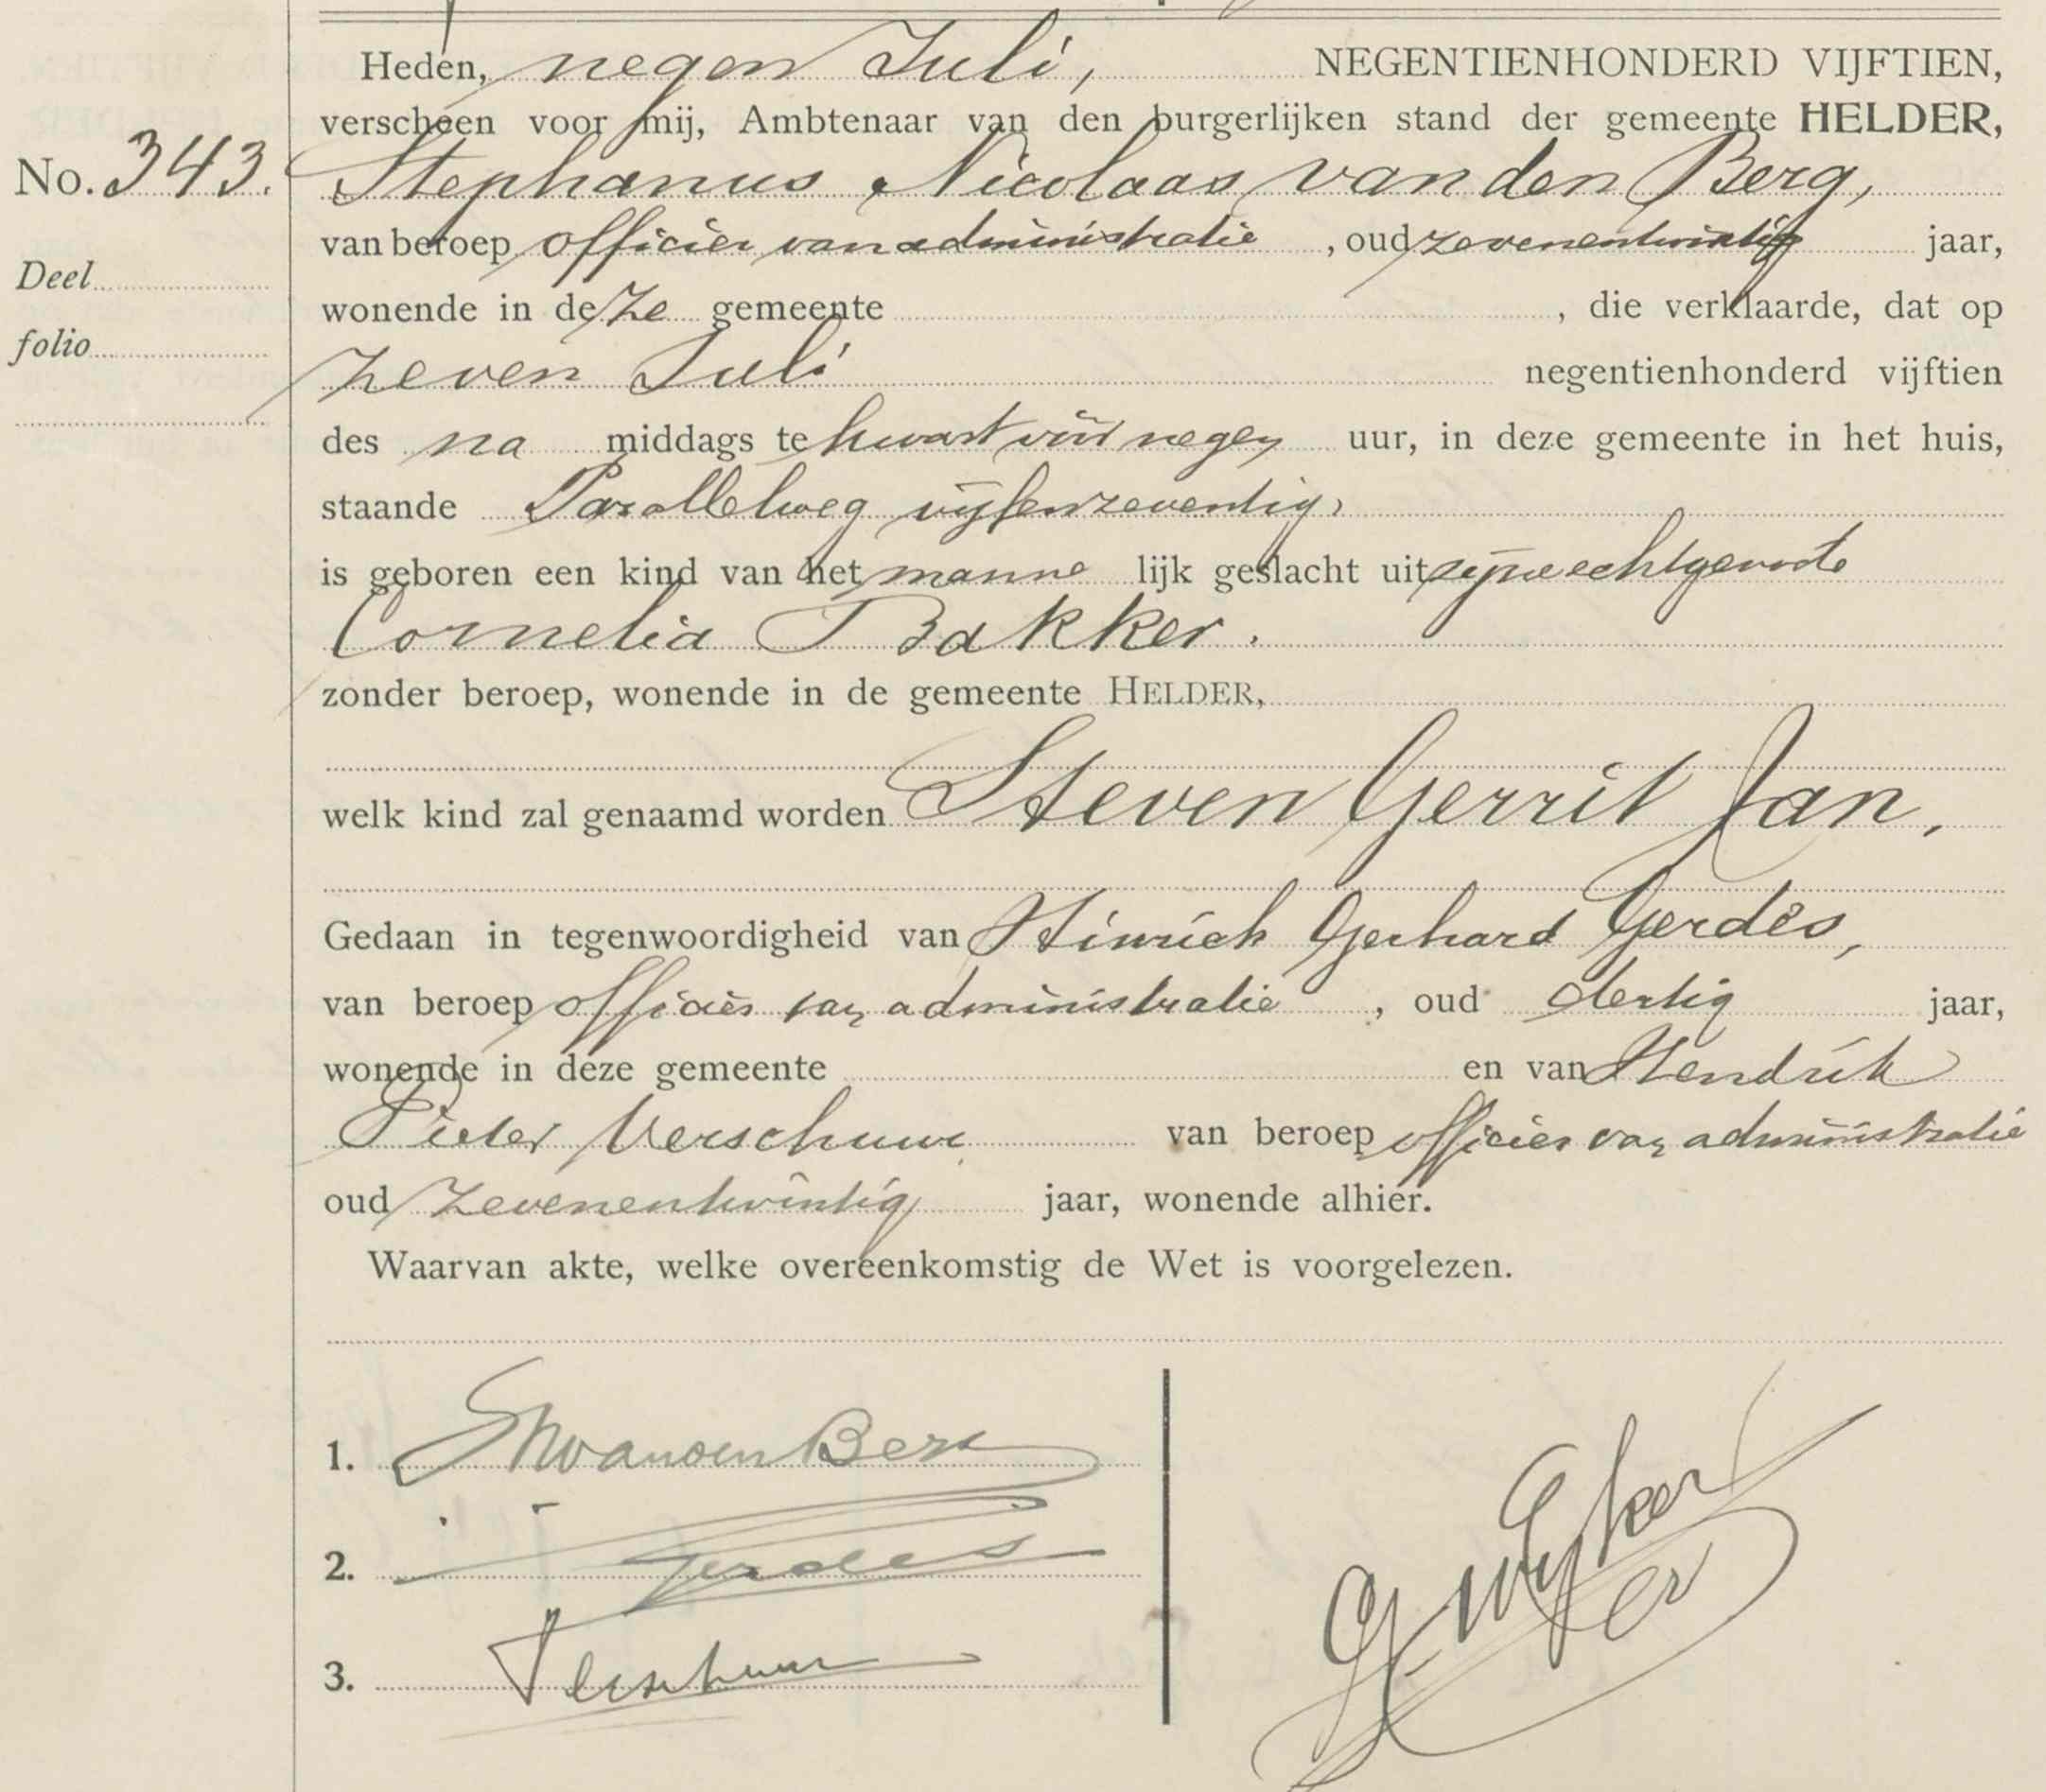 Heden, negen Juli, NEGENTIENHONDERD VIJFTIEN,
verscheen voor mij, Ambtenaar van den burgerlijken stand der gemeente HELDER,
No. 343. Stephanus Nicolaas van den Berg,
van beroep officier van administratie, oud zevenentwintig jaar,
Deel
wonende in deze gemeente, die verklaarde, dat op
folio
zeven Juli negentienhonderd vijftien
des na middags te kwart voor negen uur, in deze gemeente in het huis,
staande Parallelweg vijfenzeventig,
is geboren een kind van het manne lijk geslacht uit zijne echtgenoote
Cornelia Bakker.
zonder beroep, wonende in de gemeente HELDER,
welk kind zal genaamd worden Steven Gerrit Jan,
Gedaan in tegenwoordigheid van Hinrich Gerhard Gerdes,
van beroep officier van administratie, oud dertig jaar,
wonende in deze gemeente en van Hendrik
Pieter Verschuur van beroep officier van administratie
oud zevenentwintig jaar, wonende alhier.
Waarvan akte, welke overeenkomstig de Wet is voorgelezen.
1. SN van den Berg
2. Gerdes
3. Verschuur